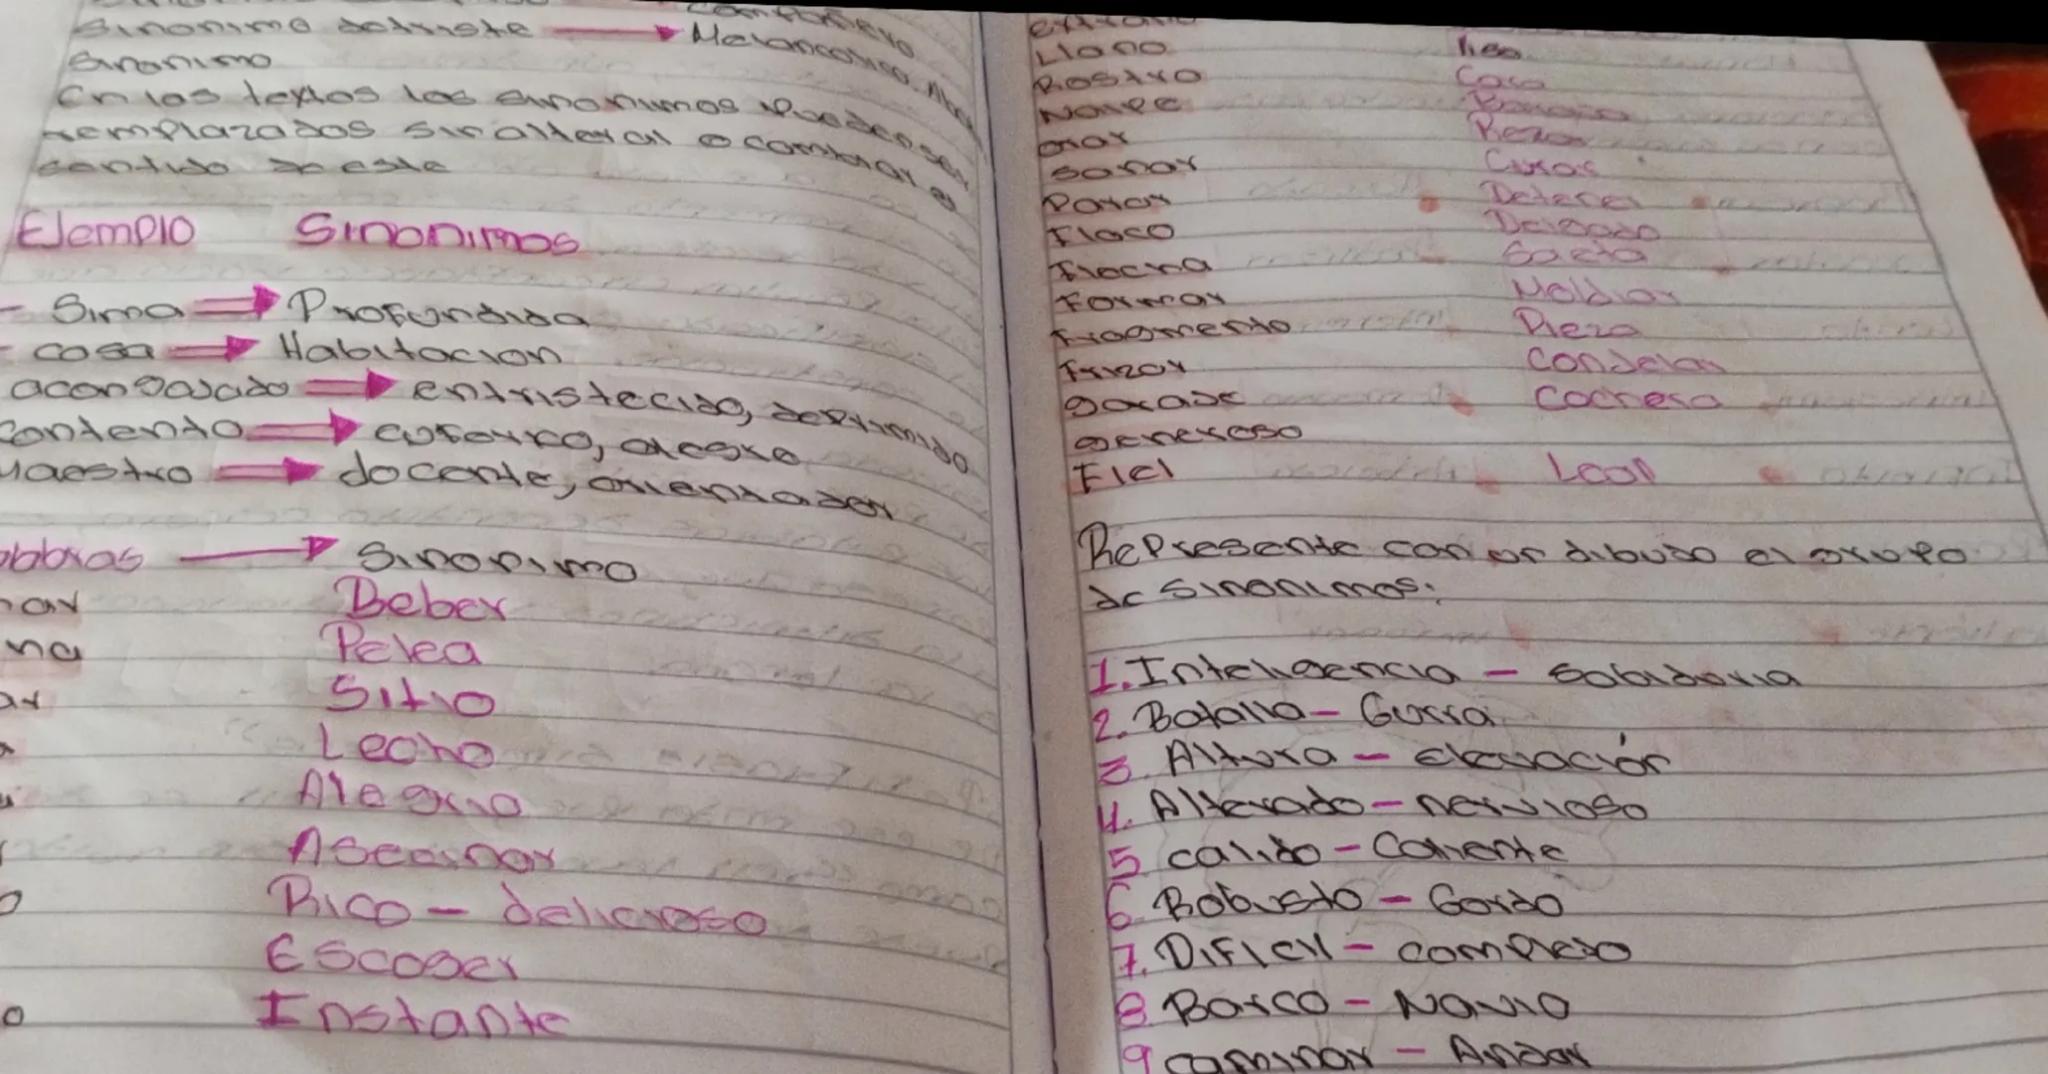 Sinonimo de triste → Melancolico. Abu
Sinonimo
En los textos los sinonimos pueden ser
remplazados sin alteral o cambiar el
sentido de este
Ejemplo Sinonimos
- Sima → Profundida
- casa → Habitacion
acongojado → entristecido, deprimido
contento → euforico, alegre
Maestro → docente, orientador
abbras → Sinonimo
nar Beber
na Pelea
ar Sitio
Lecho
Alegria
Asecinar
Rico - delicioso
Escoger
o Instante
extraño
Llano liso
Rostro Cara
Naipe Baraja
orar Rezar
sanar Curar
Parar Detener
Flaco Delgado
Flecha Saeta
Formar Moldiar
Fragmento Pieza
Frizar Condelar
garaje Cochera
generoso
Fiel Leal
Represente con un dibujo el grupo
de sinonimos:
1. Inteligencia - Sabidoria
2. Batalla - Gurra
3. Altura - elevación
4. Alterado - nervioso
5 calido - Caliente
6. Robusto - Gordo
7. Dificil - complejo
8. Barco - Navio
9 caminar - Andar